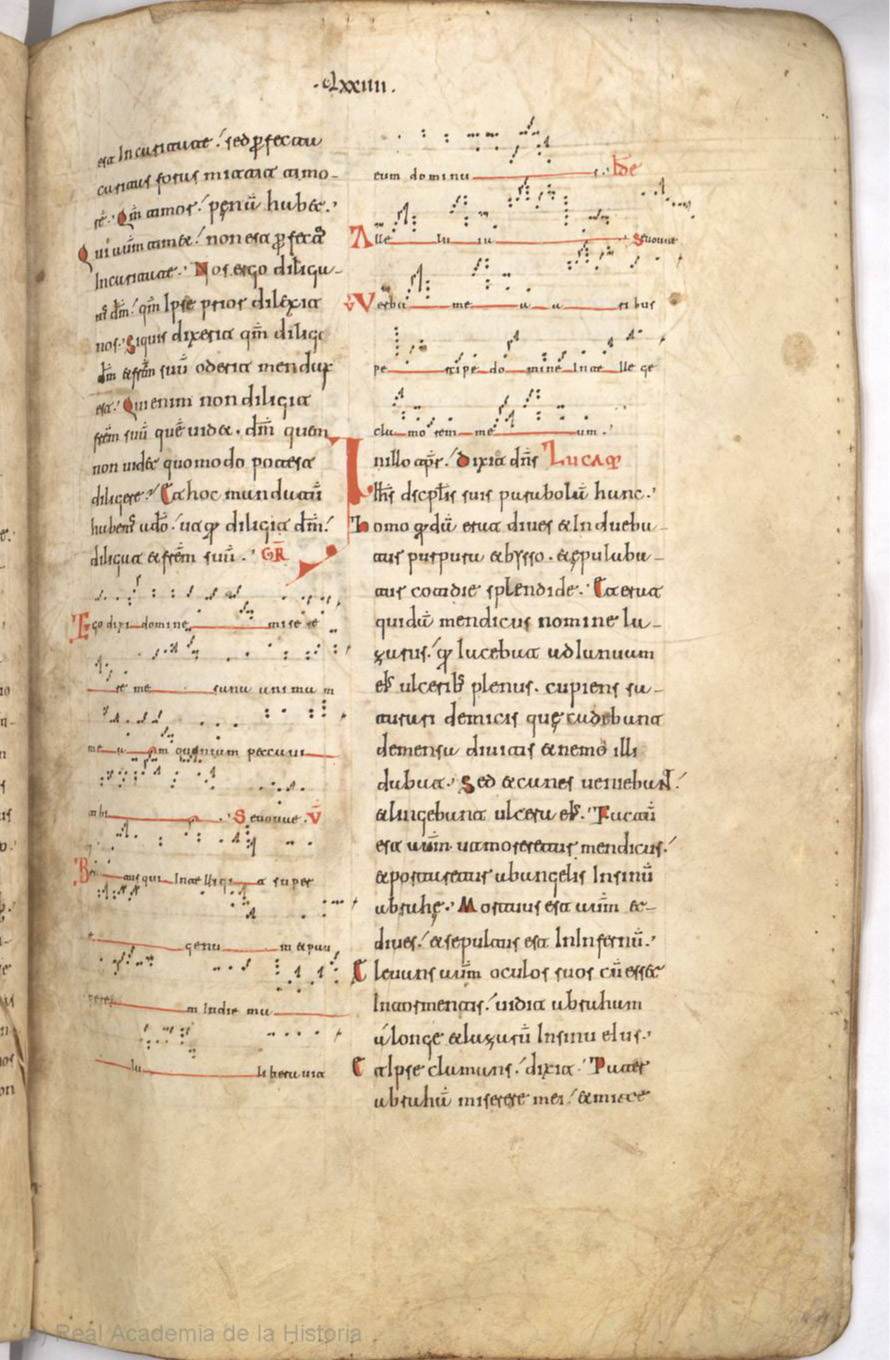 ·clxxiiii.
est In caritate. sed ꝑfecta
caritas foras mittit timo-
rē. Qm̄ timor penā habet.
Qui autē timet non est ꝑfect᷒
In caritate. Nos ergo diliga-
m᷒ dm̄. qm̄ Ipse prior dilexit
nos. Siquis dixerit qm̄ diligo
dm̄ & frēm suū oderit mendax
est. Qui enim non diligit
frēm suū quē videt. dm̄ quem
non videt quomodo potest
diligere. Et hoc mandatū
habem᷒ a dō. ut qͥ diligit dm̄.
diligat & frēm suū. GR̄
Ego dixi domine mise re
re me sana animam
me a m quoniam peccavi
tibi Seuouae. V̄
Be atus qui Intelligit super
egenu m & pau
perem In die ma
la liberavit
eum dominu s.
Alle lu ia Seuouae
V̄ Verba me a auribus
percipe domine Intellege
clamorem me um.
Inillo tp̄r. Dixit dn̄s Lucaꝫ
Ih̄s discplīs suis parabolā hanc.
Homo qͥdā erat dives & Indueba-
tur purpura & bysso. & epulaba-
tur cotidie splendide. Et erat
quidā mendicus nomine la-
zarus. qͥ iacebat ad Ianuam
ei᷒ ulcerib᷒ plenus. cupiens sa-
turari demicis quę cadebant
demensa divitis & nemo illi
dabat. Sed & canes veniebant.
& lingebant ulcera ei᷒. Factū
est autē ut moreretur mendicus.
& portaretur abangelis Insinū
abrahę. Mortuus est autē &-
dives. & sepultus est InInfernū.
Elevans autē oculos suos cū ess&
Intormentis. vidit abraham
alonge & lazarū Insinu eius.
Et Ipse clamans. dixit. Pater
abrahā miserere mei. & mitte
Real Academia de la Historia